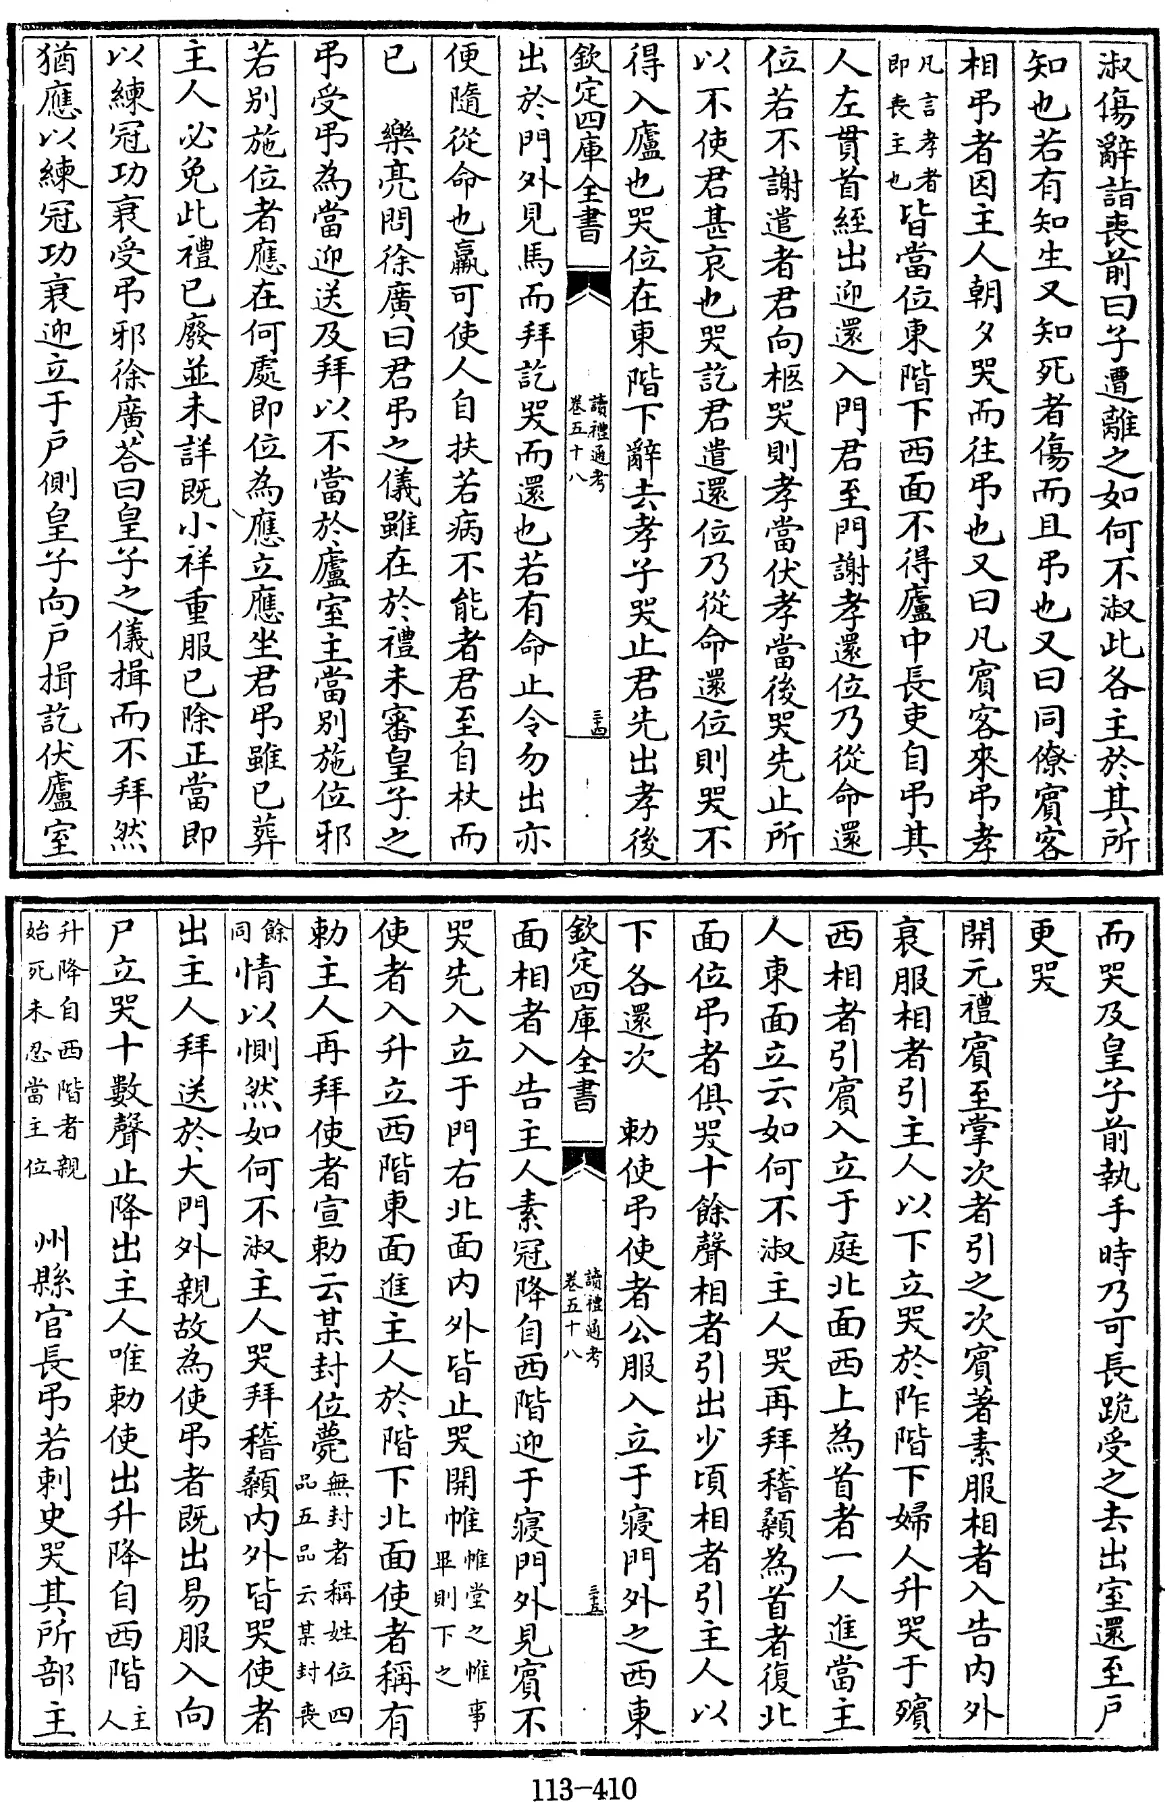 淑傷辭詣喪前曰子遭離之如何不淑此各主於其所
知也若有知生又知死者傷而且弔也又曰同僚賓客
相弔者因主人朝夕哭而往弔也又曰凡賓客來弔孝
凡言孝者
即喪主也
皆當位東階下西面不得廬中長吏自弔其
人左貫首絰出迎還入門君至門謝孝還位乃從命還
位若不謝遣者君向柩哭則孝當伏孝當後哭先止所
以不使君甚哀也哭訖君遣還位乃從命還位則哭不
得入廬也哭位在東階下辭去孝子哭止君先出孝後
欽定四庫全書
讀禮通考
卷五十八
三十四
出於門外見馬而拜訖哭而還也若有命止令勿出亦
便隨從命也羸可使人自扶若病不能者君至自杖而
已 樂亮問徐廣曰君弔之儀雖在於禮未審皇子之
弔受弔為當迎送及拜以不當於廬室主當別施位邪
若別施位者應在何處即位為應立應坐君弔雖已葬
主人必免此禮已廢並未詳既小祥重服已除正當即
以練冠功衰受弔邪徐廣荅曰皇子之儀揖而不拜然
猶應以練冠功衰迎立于戶側皇子向戶揖訖伏廬室
而哭及皇子前執手時乃可長跪受之去出室還至戶
更哭
開元禮賓至掌次者引之次賓著素服相者入告內外
衰服相者引主人以下立哭於阼階下婦人升哭于殯
西相者引賓入立于庭北面西上為首者一人進當主
人東面立云如何不淑主人哭再拜稽顙為首者復北
面位弔者俱哭十餘聲相者引出少頃相者引主人以
下各還次 勅使弔使者公服入立于寢門外之西東
欽定四庫全書
讀禮通考
卷五十八
三十五
面相者入告主人素冠降自西階迎于寢門外見賓不
哭先入立于門右北面內外皆止哭開帷
帷堂之帷事
畢則下之
使者入升立西階東面進主人於階下北面使者稱有
勅主人再拜使者宣勅云某封位薨
無封者稱姓位四
品五品云某封喪
餘
同
情以惻然如何不淑主人哭拜稽顙內外皆哭使者
出主人拜送於大門外親故為使弔者既出易服入向
尸立哭十數聲止降出主人唯勅使出升降自西階
主
人
升降自西階者親
始死未忍當主位
州縣官長弔若刺史哭其所部主
113-410